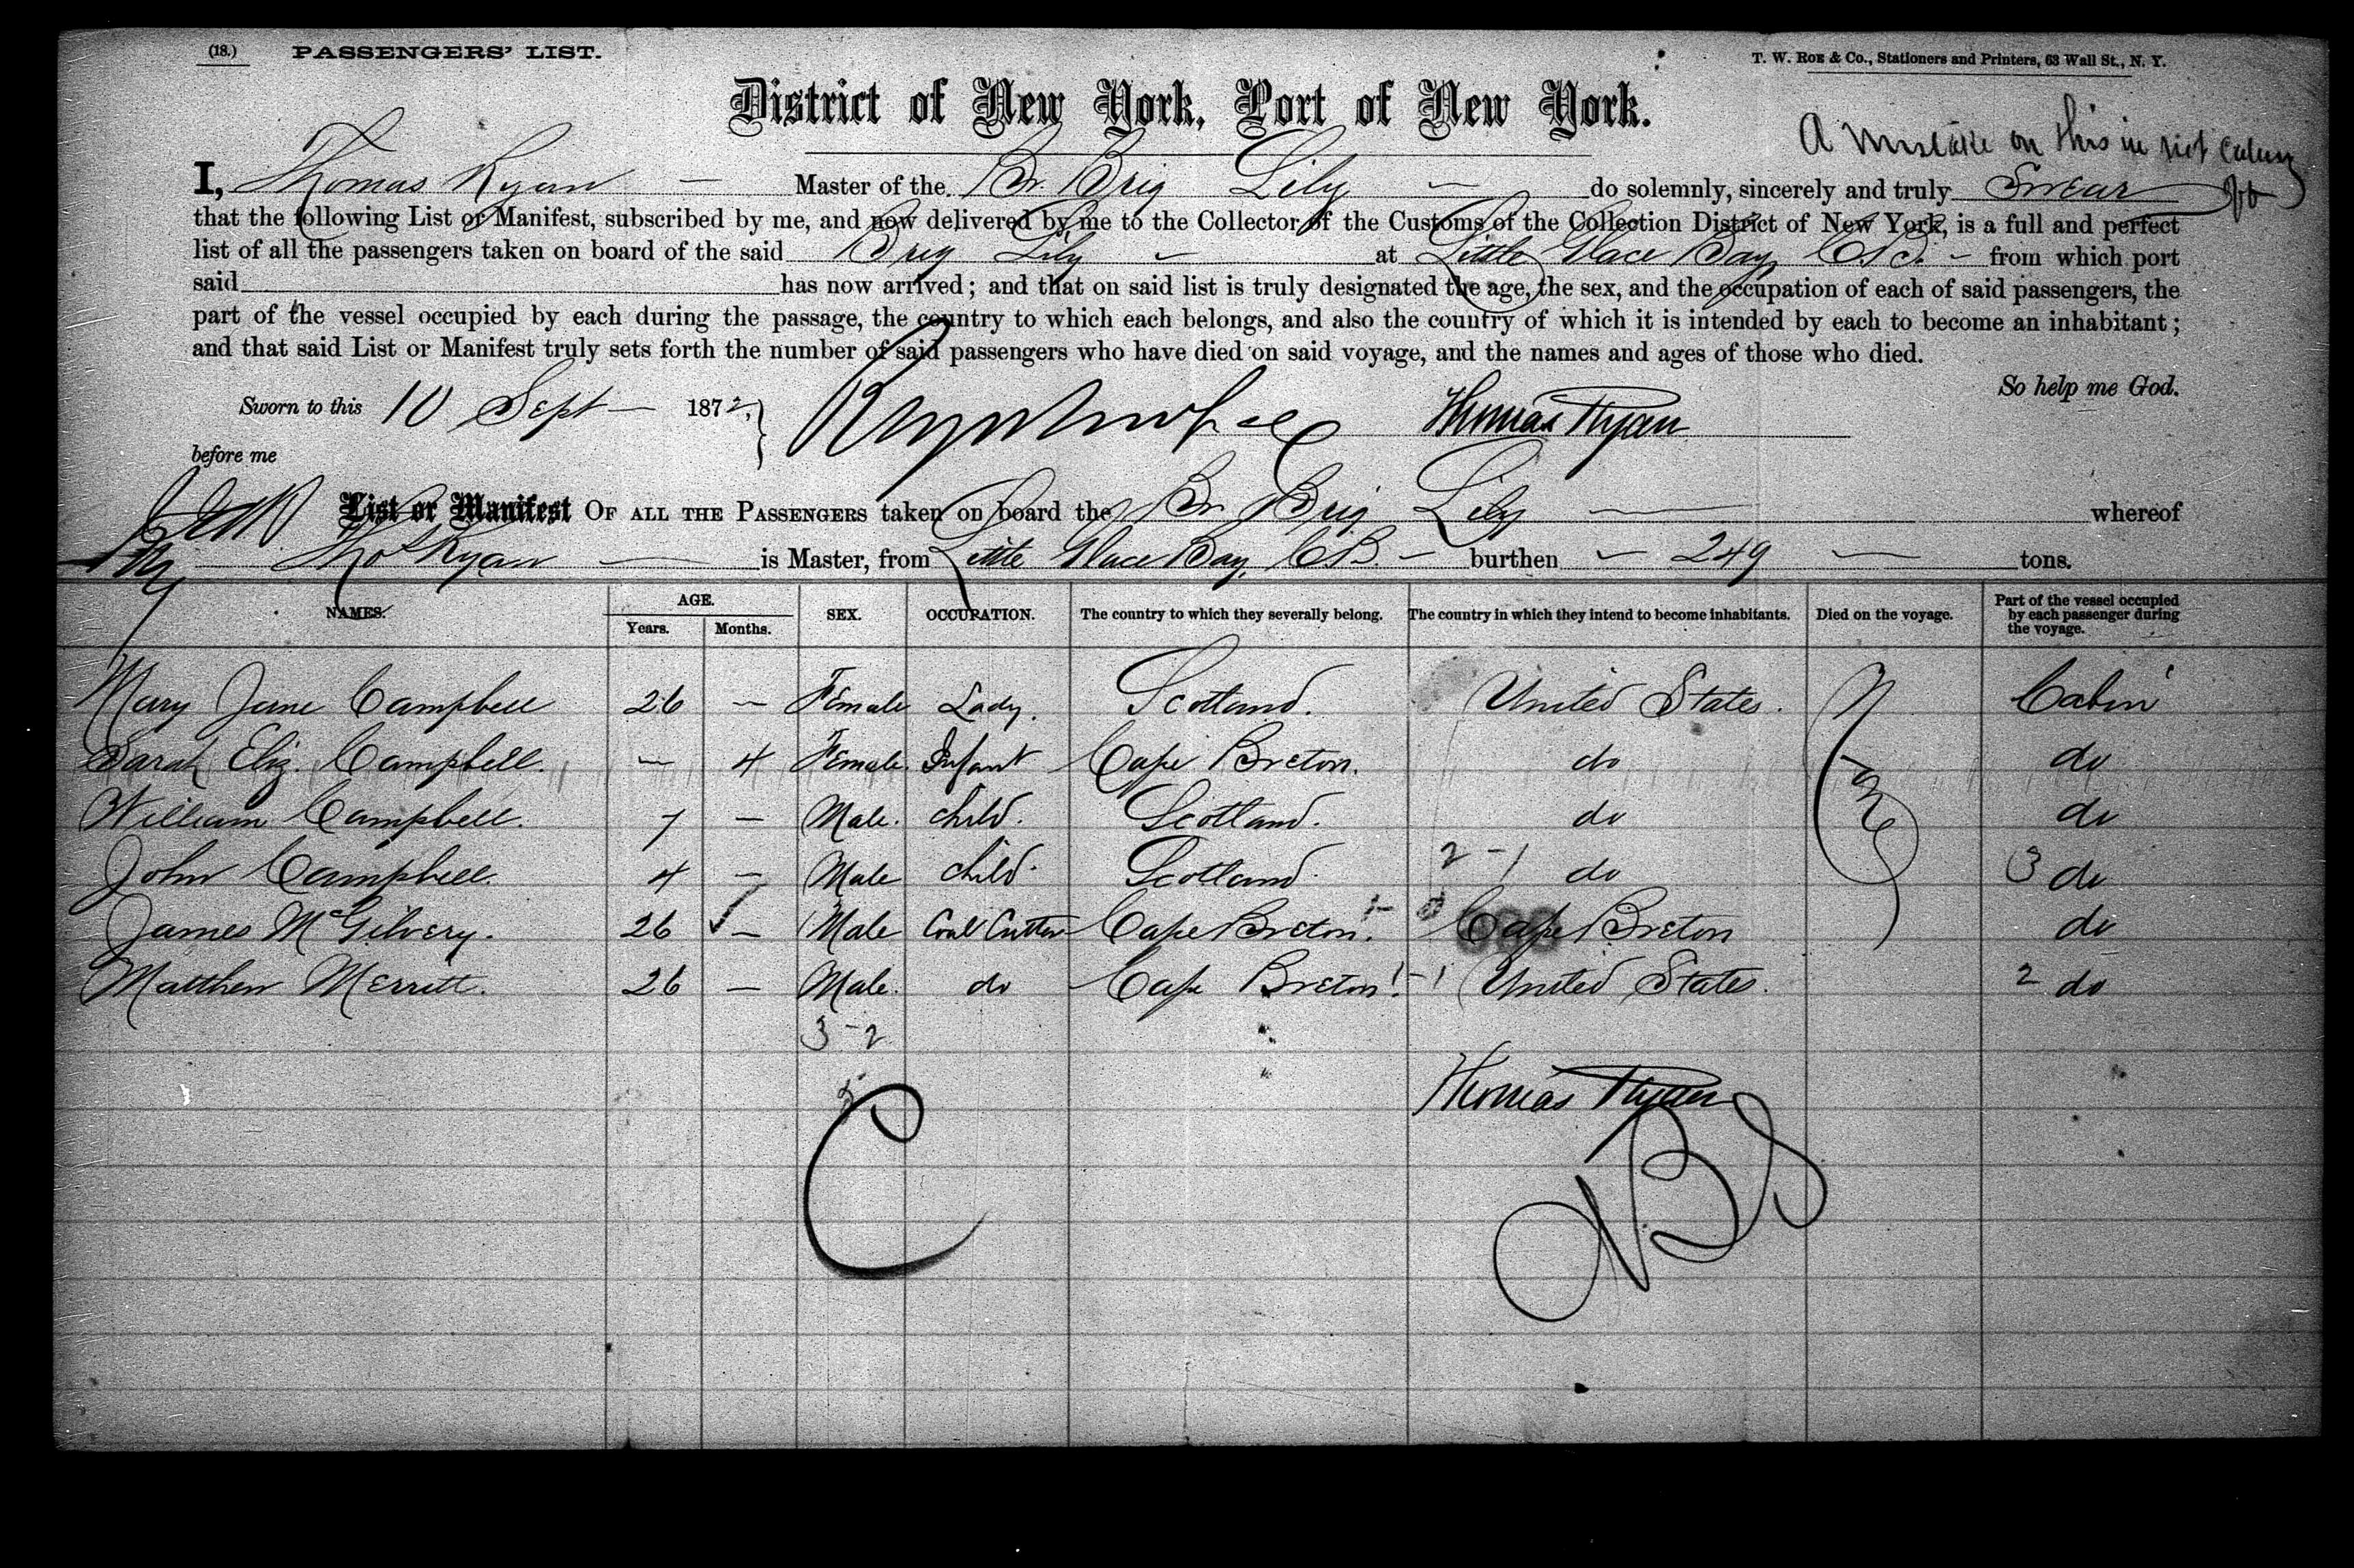 (18.) PASSENGERS' LIST. T. W. ROE & Co., Stationers and Printers, 63 Wall St., N. Y.
District of New York, Port of New York.
A mistake on this in not
I, Thomas Ryan — Master of the Br. Brig Lily — do solemnly, sincerely and truly Swear
that the following List or Manifest, subscribed by me, and now delivered by me to the Collector of the Customs of the Collection District of New York, is a full and perfect
list of all the passengers taken on board of the said Brig Lily — at Little Glace Bay, C.B. — from which port
said has now arrived; and that on said list is truly designated the age, the sex, and the occupation of each of said passengers, the
part of the vessel occupied by each during the passage, the country to which each belongs, and also the country of which it is intended by each to become an inhabitant;
and that said List or Manifest truly sets forth the number of said passengers who have died on said voyage, and the names and ages of those who died.
So help me God.
Sworn to this 10 Sept — 1872, Thomas Ryan
before me
List or Manifest OF ALL THE PASSENGERS taken on board the Br Brig Lily — whereof
Thos Ryan — is Master, from Little Glace Bay, C.B. — burthen — 249 — tons.
NAMES. AGE. Years. Months. SEX. OCCUPATION. The country to which they severally belong. The country in which they intend to become inhabitants. Died on the voyage. Part of the vessel occupied by each passenger during the voyage.
Mary Jane Campbell 26 — Female Lady. Scotland. United States. Cabin
Sarah Eliz. Campbell. — 4 Female. Infant Cape Breton. do do
William Campbell. 7 — Male. child. Scotland. do do
John Campbell. 4 — Male child. Scotland. 2 - 1 do 3 do
James McGilvery. 26 — Male Coal Cutter Cape Breton. Cape Breton do
Matthew Merritt. 26 — Male. do Cape Breton. 1 - 1 United States. 2 do
3 - 2
5
Thomas Ryan
C